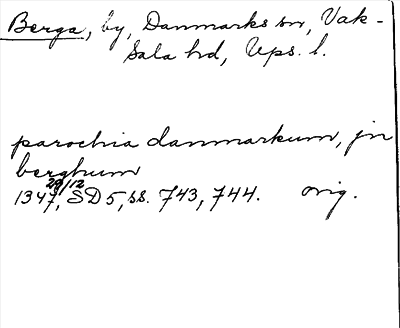 Berga, by, Danmarks sn, Vak-
sala hd, Ups. l.
parochia danmarkum, jn
berghum
29/12
1347, SD 5, ss. 743, 744. orig.